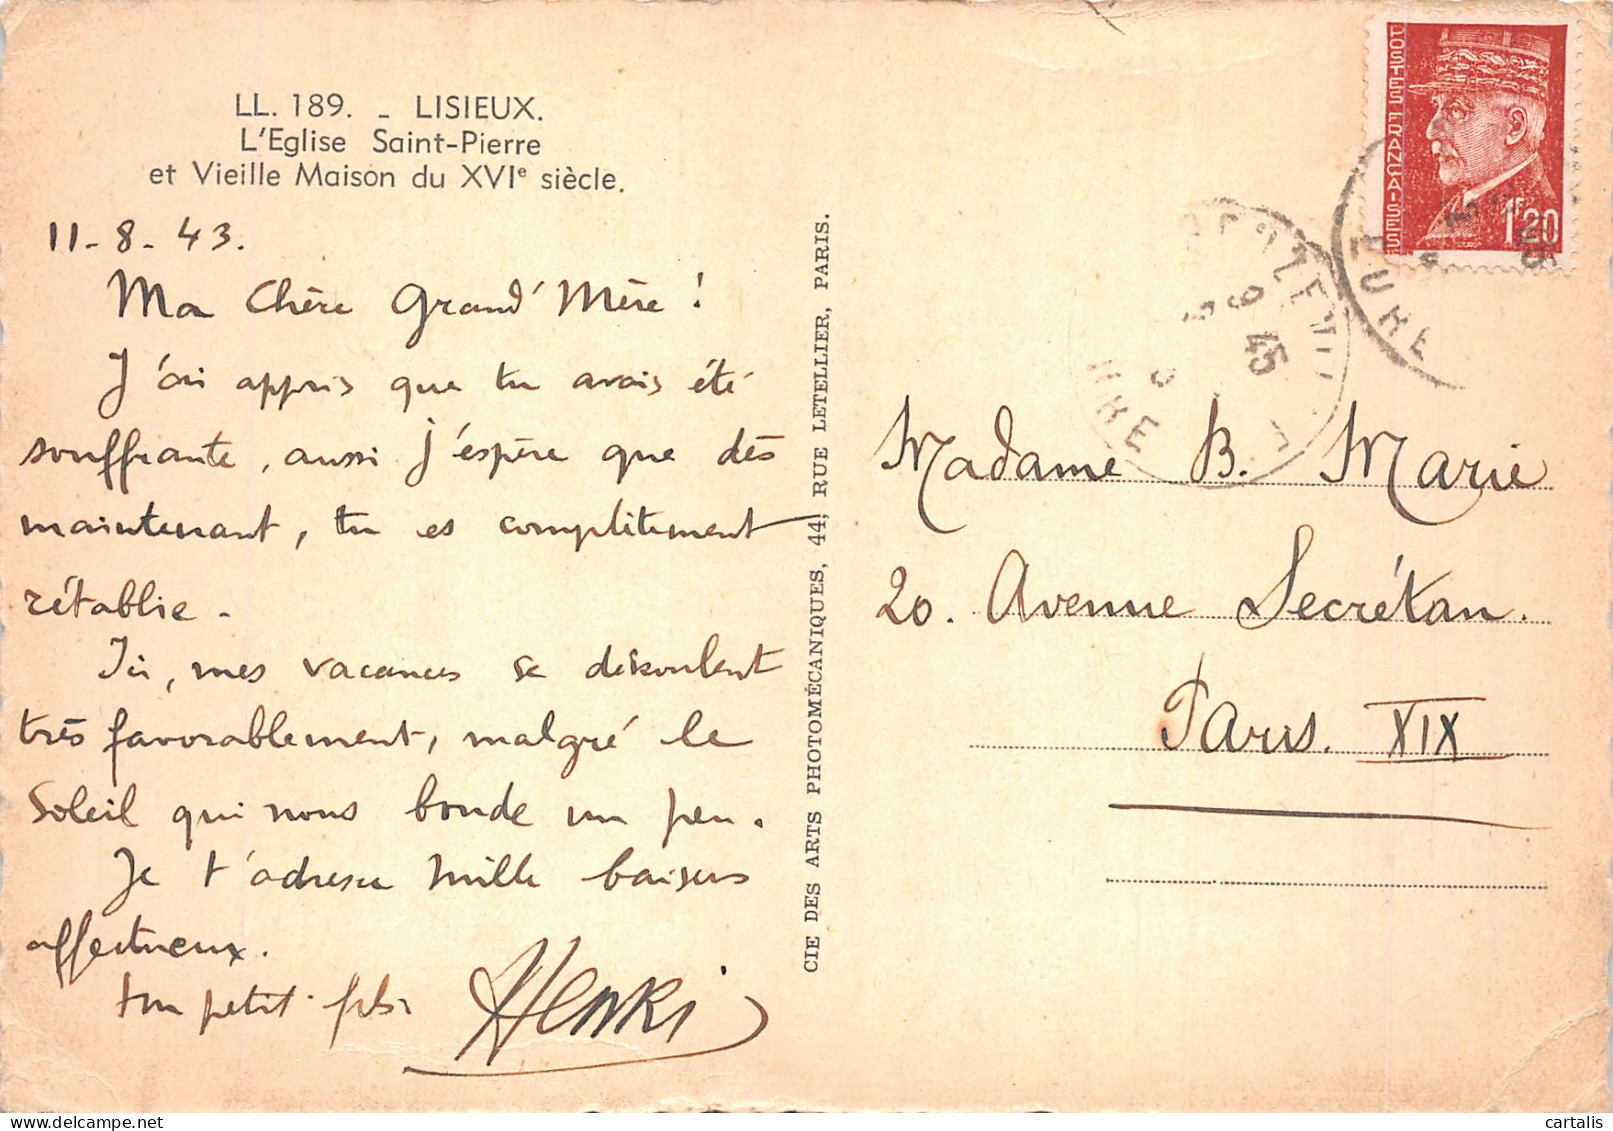 LL. 189. - LISIEUX.
L'Eglise Saint-Pierre
et Vieille Maison du XVIe siècle.
11-8-43.
Ma Chère Grand'Mère!
J'ai appris que tu avais été
souffrante, aussi j'espère que dès
maintenant, tu es complètement
rétablie.
Ici, mes vacances se déroulent
très favorablement, malgré le
Soleil qui nous boude un peu.
Je t'adresse mille baisers
affectueux.
ton petit-fils
Henri
CIE DES ARTS PHOTOMÉCANIQUES, 44, RUE LETELLIER, PARIS.
POSTES FRANÇAISES
1F20
EURE
9
45
Madame B. Marie
20. Avenue Secrétan.
Paris. XIX
cartalis